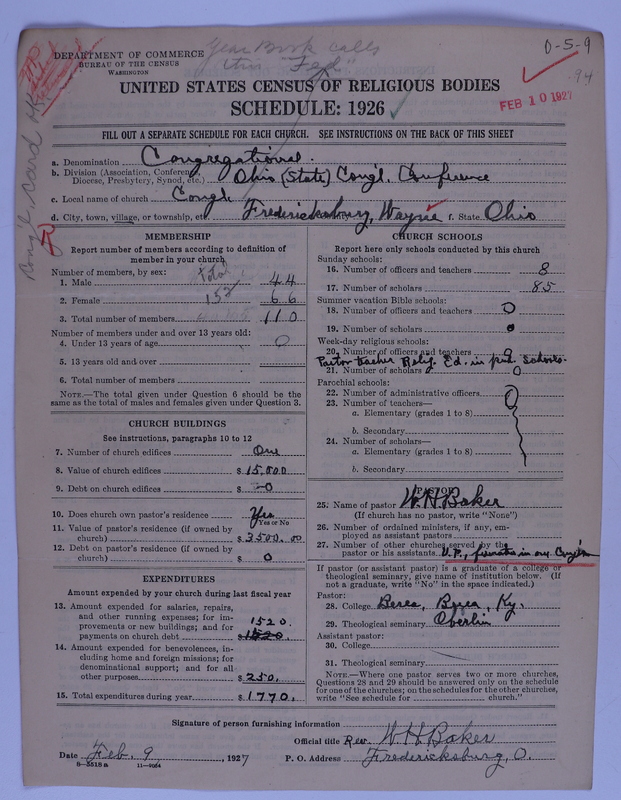 Year Book calls
this "Fed"
0-5-9
94
FEB 10 1927
DEPARTMENT OF COMMERCE
BUREAU OF THE CENSUS
WASHINGTON
UNITED STATES CENSUS OF RELIGIOUS BODIES
SCHEDULE: 1926
FILL OUT A SEPARATE SCHEDULE FOR EACH CHURCH. SEE INSTRUCTIONS ON THE BACK OF THIS SHEET
a. Denomination Congregational.
b. Division (Association, Conference, Diocese, Presbytery, Synod, etc.) Ohio (State) Cong'l. Conference
c. Local name of church Congl.
d. City, town, village, or township, etc. Fredericksburg, Wayne f. State Ohio
MEMBERSHIP
Report number of members according to definition of
member in your church
Number of members, by sex:
total
1. Male 44
2. Female 152 66
3. Total number of members 110
Number of members under and over 13 years old:
4. Under 13 years of age 0
5. 13 years old and over
6. Total number of members
NOTE.—The total given under Question 6 should be
the same as the total of males and females given under Question 3.
CHURCH BUILDINGS
See instructions, paragraphs 10 to 12
7. Number of church edifices One
8. Value of church edifices $ 15,000
9. Debt on church edifices $ 0
10. Does church own pastor's residence Yes
Yes or No
11. Value of pastor's residence (if owned by
church) $ 3500.00
12. Debt on pastor's residence (if owned by
church) $ 0
EXPENDITURES
Amount expended by your church during last fiscal year
13. Amount expended for salaries, repairs,
and other running expenses; for im-
provements or new buildings; and for 1520.
payments on church debt $ 1520.
14. Amount expended for benevolences, in-
cluding home and foreign missions; for
denominational support; and for all
other purposes $ 250.
15. Total expenditures during year $ 1770.
CHURCH SCHOOLS
Report here only schools conducted by this church
Sunday schools:
16. Number of officers and teachers 8
17. Number of scholars 85
Summer vacation Bible schools:
18. Number of officers and teachers 0
19. Number of scholars 0
Week-day religious schools:
20. Number of officers and teachers 0
Pastor teacher Relig. Ed. in pub. schools.
21. Number of scholars 0
Parochial schools:
22. Number of administrative officers 0
23. Number of teachers—
a. Elementary (grades 1 to 8)
b. Secondary
24. Number of scholars—
a. Elementary (grades 1 to 8)
b. Secondary
PASTOR
25. Name of pastor W H Baker
(If church has no pastor, write "None")
26. Number of ordained ministers, if any, em-
ployed as assistant pastors
27. Number of other churches served by the
pastor or his assistants U.P.,
If pastor (or assistant pastor) is a graduate of a college or
theological seminary, give name of institution below. (If
not a graduate, write "No" in the space indicated.)
Pastor:
28. College Berea, Berea, Ky.
29. Theological seminary Oberlin
Assistant pastor:
30. College
31. Theological seminary
NOTE.—Where one pastor serves two or more churches,
Questions 28 and 29 should be answered only on the schedule
for one of the churches; on the schedules for the other churches,
write "See schedule for church."
Signature of person furnishing information
Official title Rev. W H Baker
Date Feb. 9, 1927 P. O. Address Fredericksburg, O.
8-5518 a 11-9054